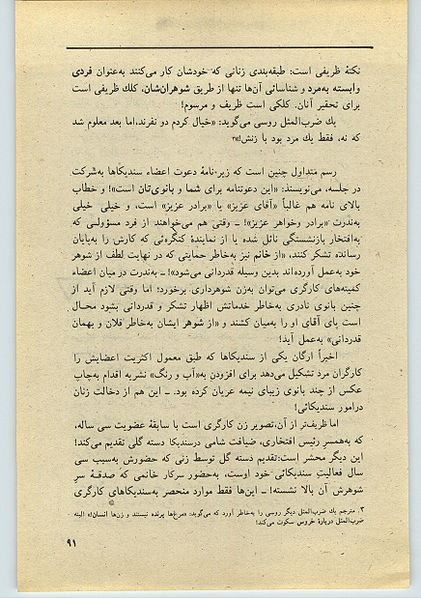 نکتهٔ ظریفی است: طبقه‌بندی زنانی که خودشان کار می‌کنند به‌عنوان فردی
وابسته به‌مرد و شناسائی آن‌ها تنها از طریق شوهران‌شان، کلك ظریفی است
برای تحقیر آنان. کلکی است ظریف و مرسوم!
یك ضرب‌المثل روسی می‌گوید: «خیال کردم دو نفرند، اما بعد معلوم شد
که نه، فقط یك مرد بود با زنش!»۳
رسم متداول چنین است که زیر نامهٔ دعوت اعضاء سندیکاها به‌شرکت
در جلسه، می‌نویسند: «این دعوتنامه برای شما و بانوی‌تان است»! و خطاب
بالای نامه هم غالباً «آقای عزیز» یا «برادر عزیز» است، و خیلی خیلی
به‌ندرت «برادر وخواهر عزیز»! ـ وقتی هم می‌خواهند از فرد مسؤولی که
به‌افتخار بازنشستگی نائل شده یا از نمایندهٔ کنگره‌ئی که کارش را به‌پایان
رسانده تشکر کنند، «از خانم نیز به‌خاطر حمایتی که در نهایت لطف از شوهر
خود به‌عمل آورده‌اند بدین وسیله قدردانی می‌شود»! ـ به‌ندرت در میان اعضاء
کمیته‌های کارگری می‌توان به‌زن شوهرداری برخورد؛ اما وقتی لازم آید از
چنین بانوی نادری به‌خاطر خدماتش اظهار تشکر و قدردانی بشود محال
است پای آقای او را به‌میان نکشند و «از شوهر ایشان به‌خاطر فلان و بهمان
قدردانی» به‌عمل آید!
اخیراً ارگان یکی از سندیکاها که طبق معمول اکثریت اعضایش را
کارگران مرد تشکیل می‌دهد برای افزودن به‌«آب و رنگ» نشریه اقدام به‌چاپ
عکس از چند بانوی زیبای نیمه عریان کرده بود. ـ این هم از دخالت زنان
درامور سندیکائی!
اما ظریف‌تر از آن، تصویر زن کارگری است با سابقهٔ عضویت سی ساله،
که به‌همسر رئیس افتخاری، ضیافت شامی درسندیکا دسته گلی تقدیم می‌کند!
این دیگر محشر است: تقدیم دسته گل توسط زنی که حضورش به‌سبب سی
سال فعالیت سندیکائی خود اوست، به‌حضور سرکار خانمی که صدقهٔ سر
شوهرش آن بالا نشسته! ـ این‌ها فقط موارد منحصر به‌سندیکاهای کارگری
۳. مترجم یك ضرب‌المثل دیگر روسی را به‌خاطر آورد که می‌گوید: «مرغ‌ها پرنده نیستند و زن‌ها انسان!» (البته
ضرب‌المثل دربارهٔ خروس سکوت می‌کند!)
۹۱